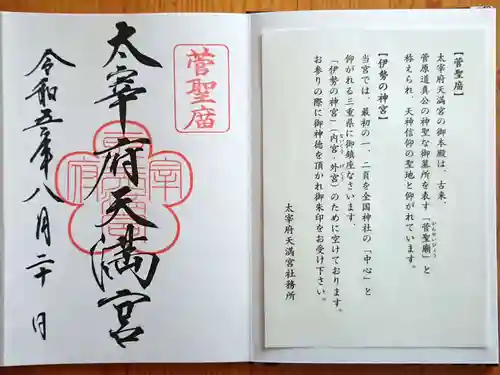 菅聖庿
太宰府天満宮
令和五年八月二十日
【菅聖庿】
太宰府天満宮の御本殿は、古来、
菅原道真公の神聖な御墓所を表す「菅聖廟」と
かんせいびょう
称えられ、天神信仰の聖地と仰がれています。
【伊勢の神宮】
当宮では、最初の一、二頁を全国神社の「中心」と
仰がれる三重県に御鎮座なさいます、
「伊勢の神宮」(内宮・外宮)のために空けております。
ないくう げくう
お参りの際に御神徳を頂かれ御朱印をお受け下さい。
太宰府天満宮社務所